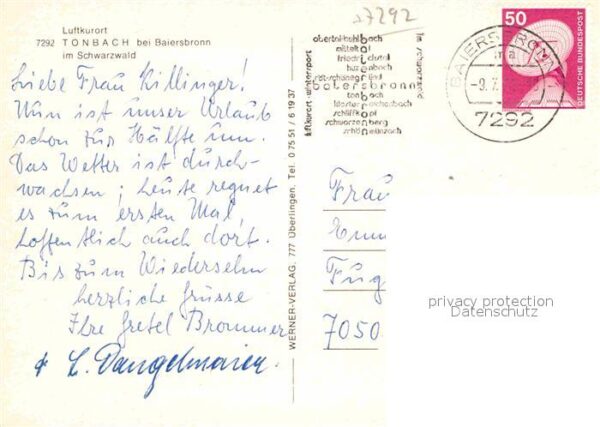 Luftkurort
7292 TONBACH bei Baiersbronn
im Schwarzwald
Liebe Frau Killinger!
Nun ist unser Urlaub
schon zur Hälfte um.
Das Wetter ist durch-
wachsen; heute regnet
es zum ersten Mal,
hoffentlich auch dort.
Bis zum Wiedersehn
herzliche Grüsse
Ihre Gretel Brommer
+ L. Dangelmaier.
WERNER-VERLAG, 777 Überlingen, Tel. 0 75 51 / 6 19 37
7292
luftkurort·wintersport
obertal-buhlbach
mitteltal
friedrichstal
huzenbach
baiersbronn
tonbach
klosterreichenbach
schliffkopf
schwarzenberg
schönmünzach
im schwarzwald
BAIERSBRONN
7292
50
DEUTSCHE BUNDESPOST
Frau
Fug
7050
privacy protection
Datenschutz